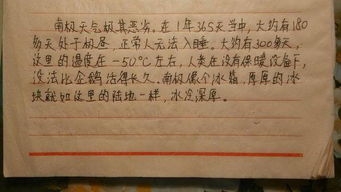 南极天气极其恶劣,在1年365天当中,大约有180
多天处于极昼,正常人无法入睡,大约有300多天,
这里的温度在-50℃左右,人类在没有保暖设备下,
没法比企鹅活得长久,南极像个冰箱,厚厚的冰
块就如这里的陆地一样,冰冷深厚。